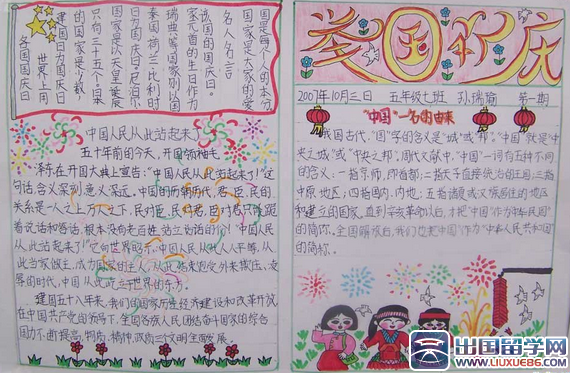 国是每个人的本分
国家是大家的爱
名人名言
该国的国庆日。
家元首的生日作为
瑞典等国家则以国
秦国荷兰比利时
日为国庆日。尼泊尔
国家是以天皇诞辰
只有三十五个。日本
的国家是少数,
建国日为国庆日
世界上用
各国国庆日
中国人民从此站起来了
五十年前的今天,开国领袖毛
泽东在开国大典上宣告:"中国人民从此站起来了!"这
句话含义深刻,意义深远。中国的历朝历代,君、臣、民的
关系是一人之上万人之下,民对臣,民对君,臣对君不只跪
着说话和答话,根本没有老百姓站立说话的份!"中国人民
从此站起来了!"它向世界昭示:中国人民从此人人平等,从
此当家做主,成为国家的主人,从此结束饱受外来欺压、凌
辱的时代,中国从此屹立于世界的东方。
建国五十八年来,我们的国家历经经济建设和改革开放
在中国共产党的领导下,全国各族人民团结奋斗国家的综合
国力不断提高,物质、精神、政治三个文明全面发展。
举国欢庆
2007年10月三日 五年级七班 孙瑞瑜 第一期
"中国"一名的由来
我国古代,"国"字的含义是"城"或"邦"。"中国"就是"中
央之城"或"中央之邦",周代文献中,"中国"一词有五种不同
的含义:一指京师,即首都;二指天子直接统治的王国;三指
中原地区;四指国内、内地;五指诸夏或汉族居住的地区
和建立的国家。直到辛亥革命以后,才把"中国"作为"中华民国"
的简称。全国解放后,我们也把"中国"作为"中华人民共和国
的简称。
出国留学网
WWW.LIUXUE86.COM